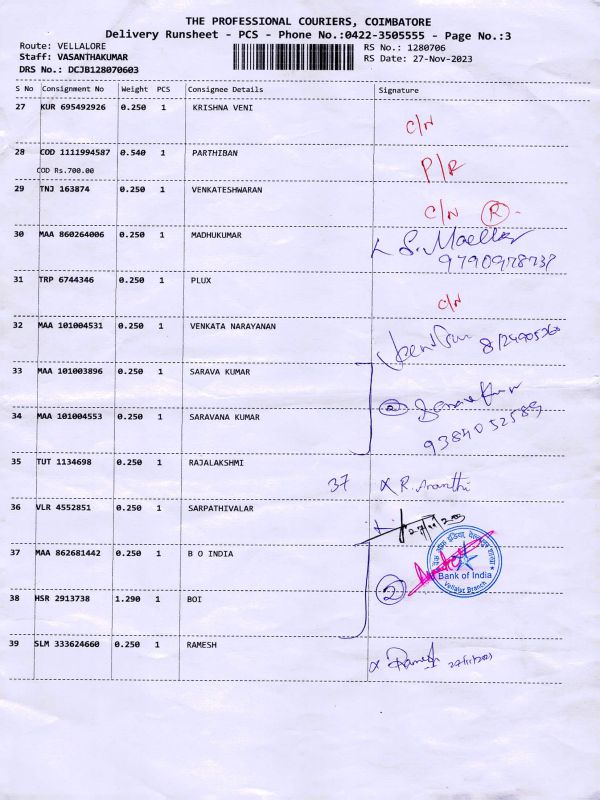 THE PROFESSIONAL COURIERS, COIMBATORE
Delivery Runsheet - PCS - Phone No.:0422-3505555 - Page No.:3
Route: VELLALORE RS No.: 1280706
Staff: VASANTHAKUMAR RS Date: 27-Nov-2023
DRS No.: DCJB128070603
S No Consignment No Weight PCS Consignee Details Signature
27 KUR 695492926 0.250 1 KRISHNA VENI
C/N
28 COD 1111994587 0.540 1 PARTHIBAN
COD Rs.700.00
P/R
29 TNJ 163874 0.250 1 VENKATESHWARAN
C/N R
30 MAA 860264006 0.250 1 MADHUKUMAR
31 TRP 6744346 0.250 1 PLUX
C/N
32 MAA 101004531 0.250 1 VENKATA NARAYANAN
33 MAA 101003896 0.250 1 SARAVA KUMAR
2
34 MAA 101004553 0.250 1 SARAVANA KUMAR
9384052589
35 TUT 1134698 0.250 1 RAJALAKSHMI
37 x R. Ananthi
36 VLR 4552851 0.250 1 SARPATHIVALAR
37 MAA 862681442 0.250 1 B O INDIA
Bank of India
Vellalur Branch
2
38 HSR 2913738 1.290 1 BOI
39 SLM 333624660 0.250 1 RAMESH
x Ramesh